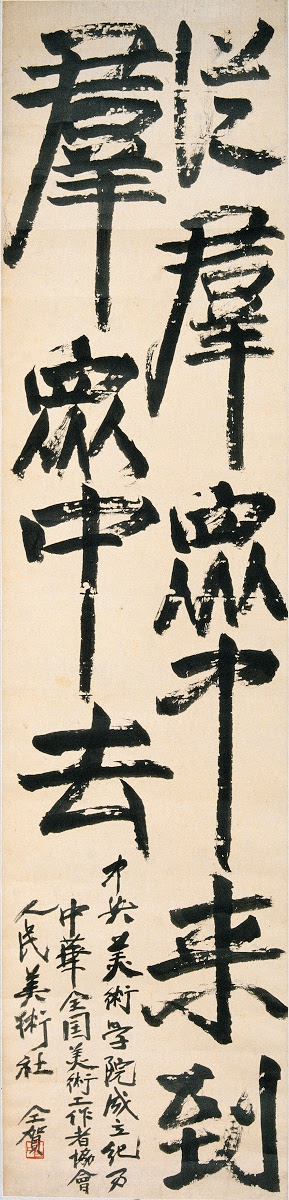 从羣眾中来到
羣眾中去
中央美術学院成立紀念
中華全国美術工作者協會
人民美術社 仝賀